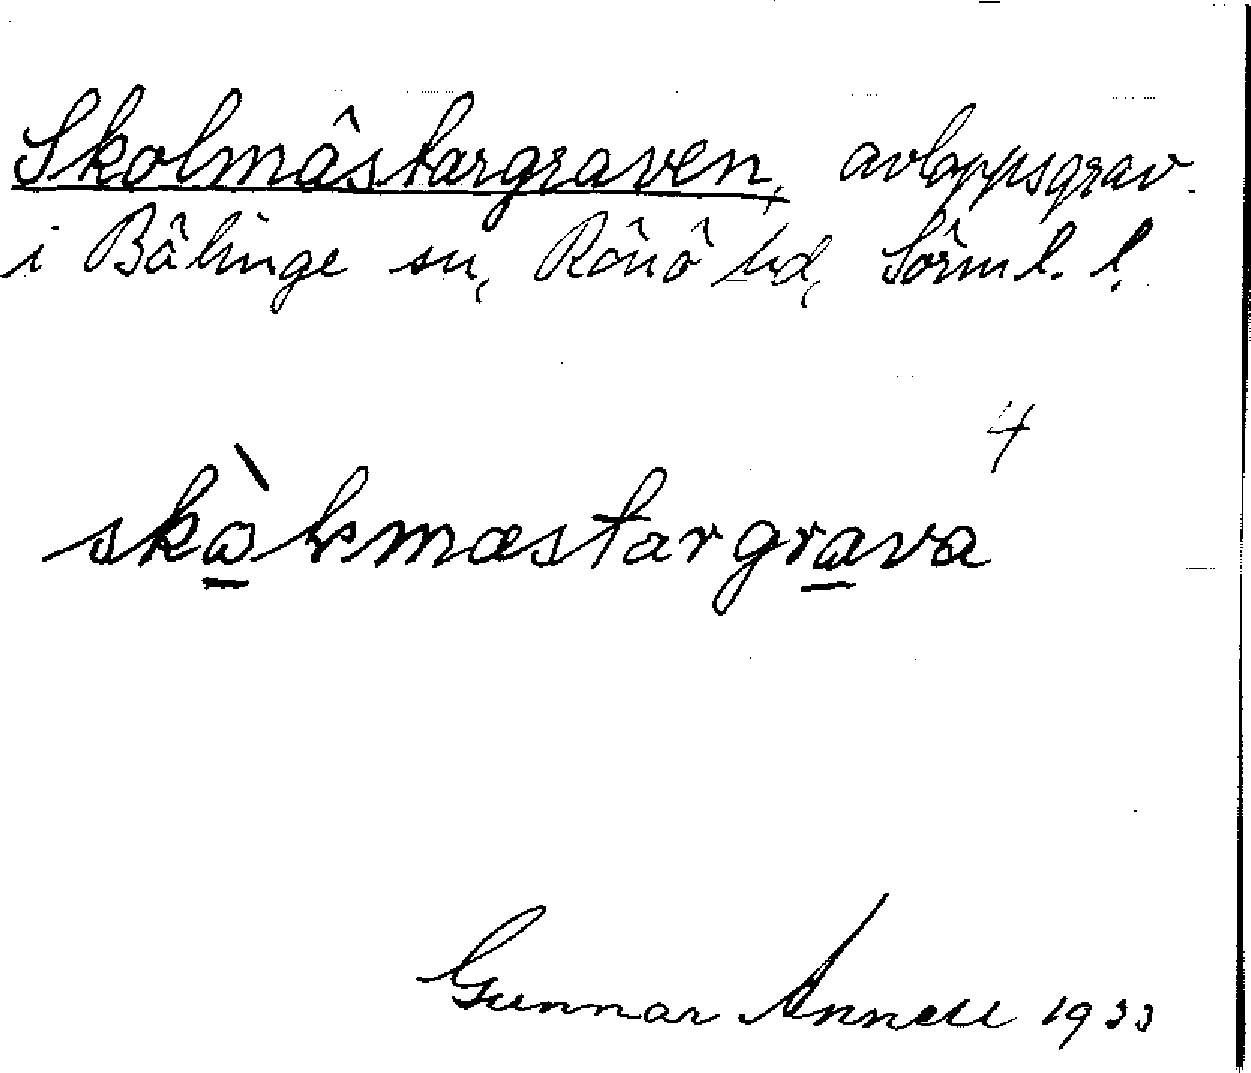 Skolmästargraven, avloppsgrav
i Bälinge sn, Rönö hd, Sörml. l.
4
skò̱lsmæstargra̱va
Gunnar Annell 1933